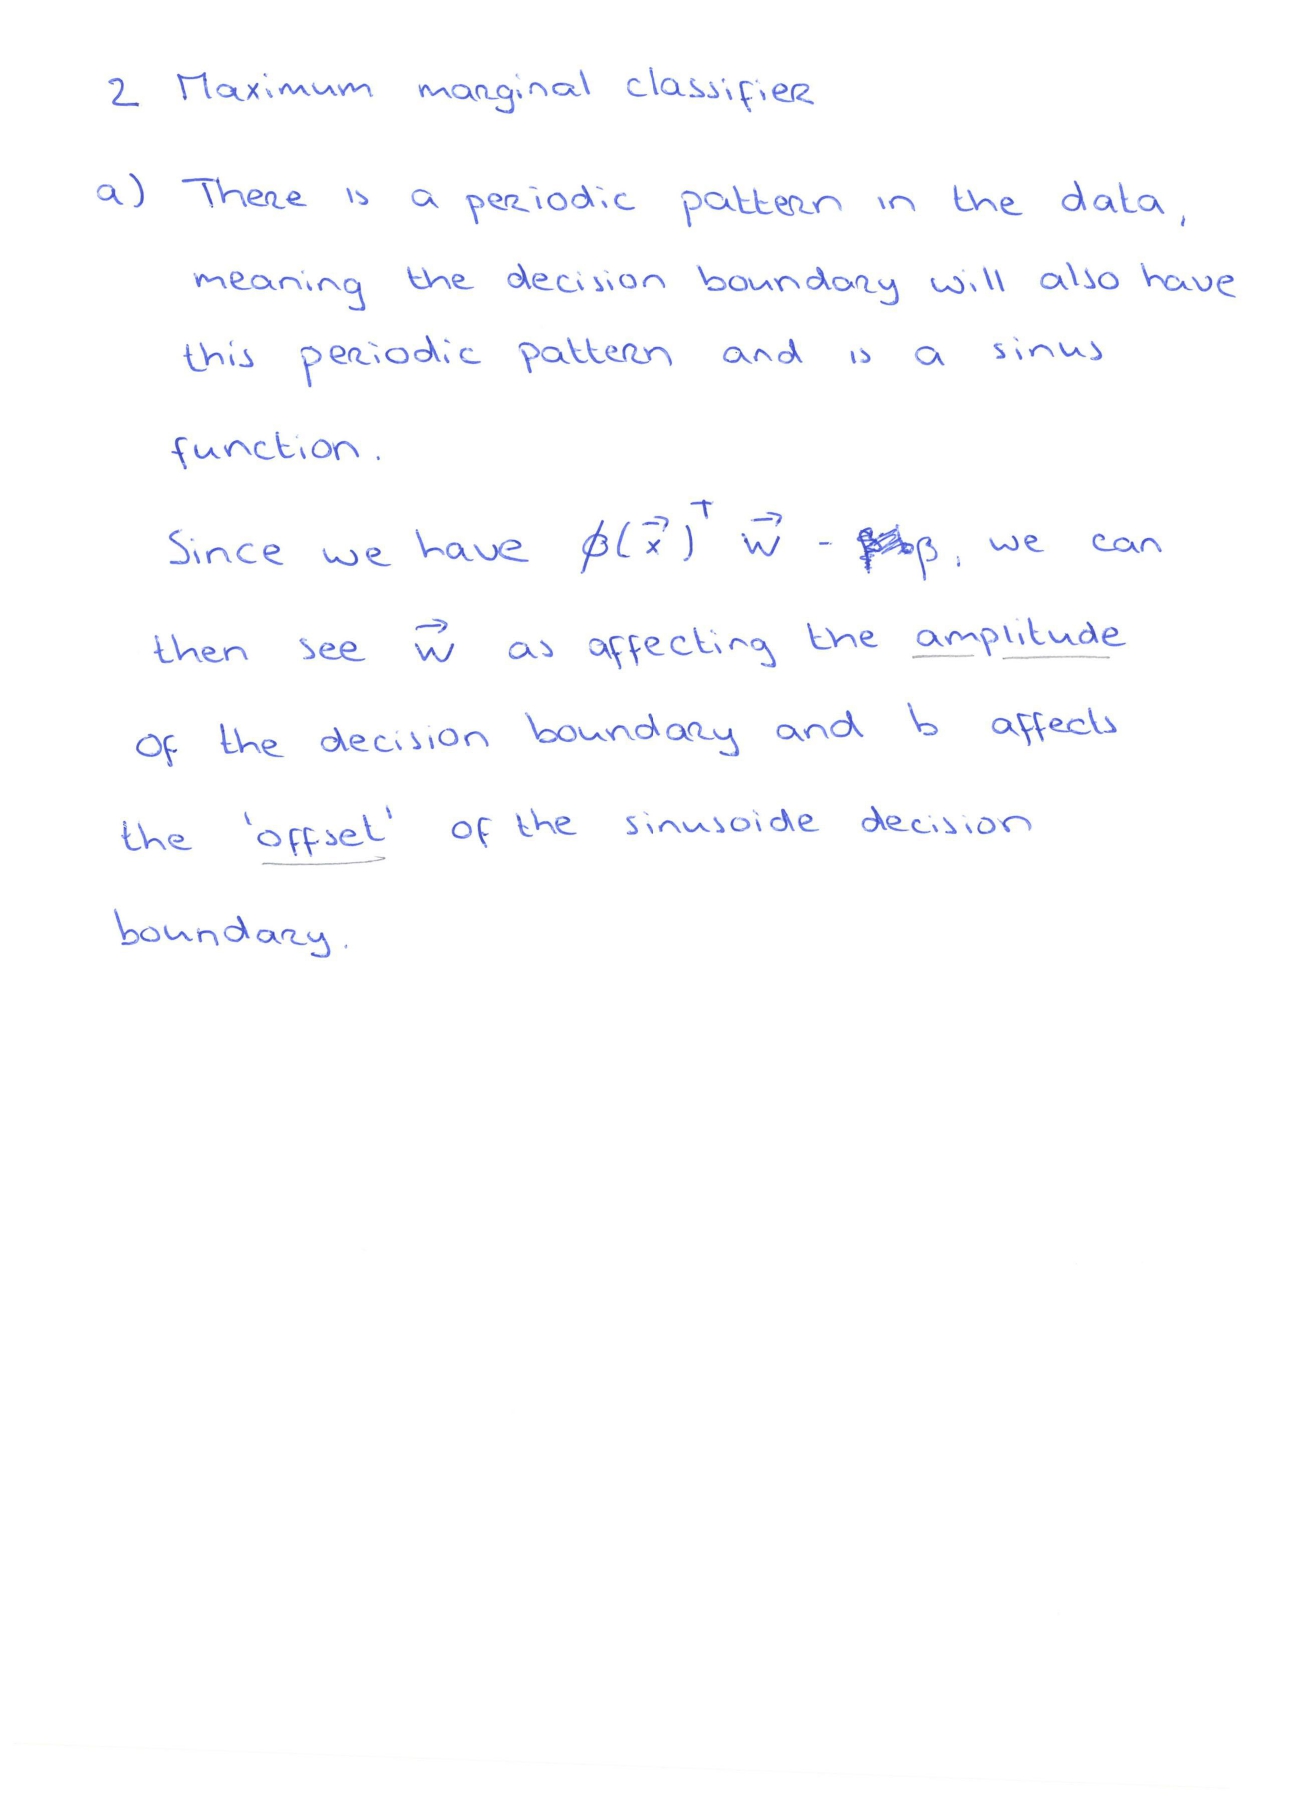 2 Maximum marginal classifier
a) There is a periodic pattern in the data,
meaning the decision boundary will also have
this periodic pattern and is a sinus
function.
Since we have ϕ(x⃗)ᵀ w⃗ - β, we can
then see w⃗ as affecting the amplitude
of the decision boundary and b affects
the 'offset' of the sinusoide decision
boundary.